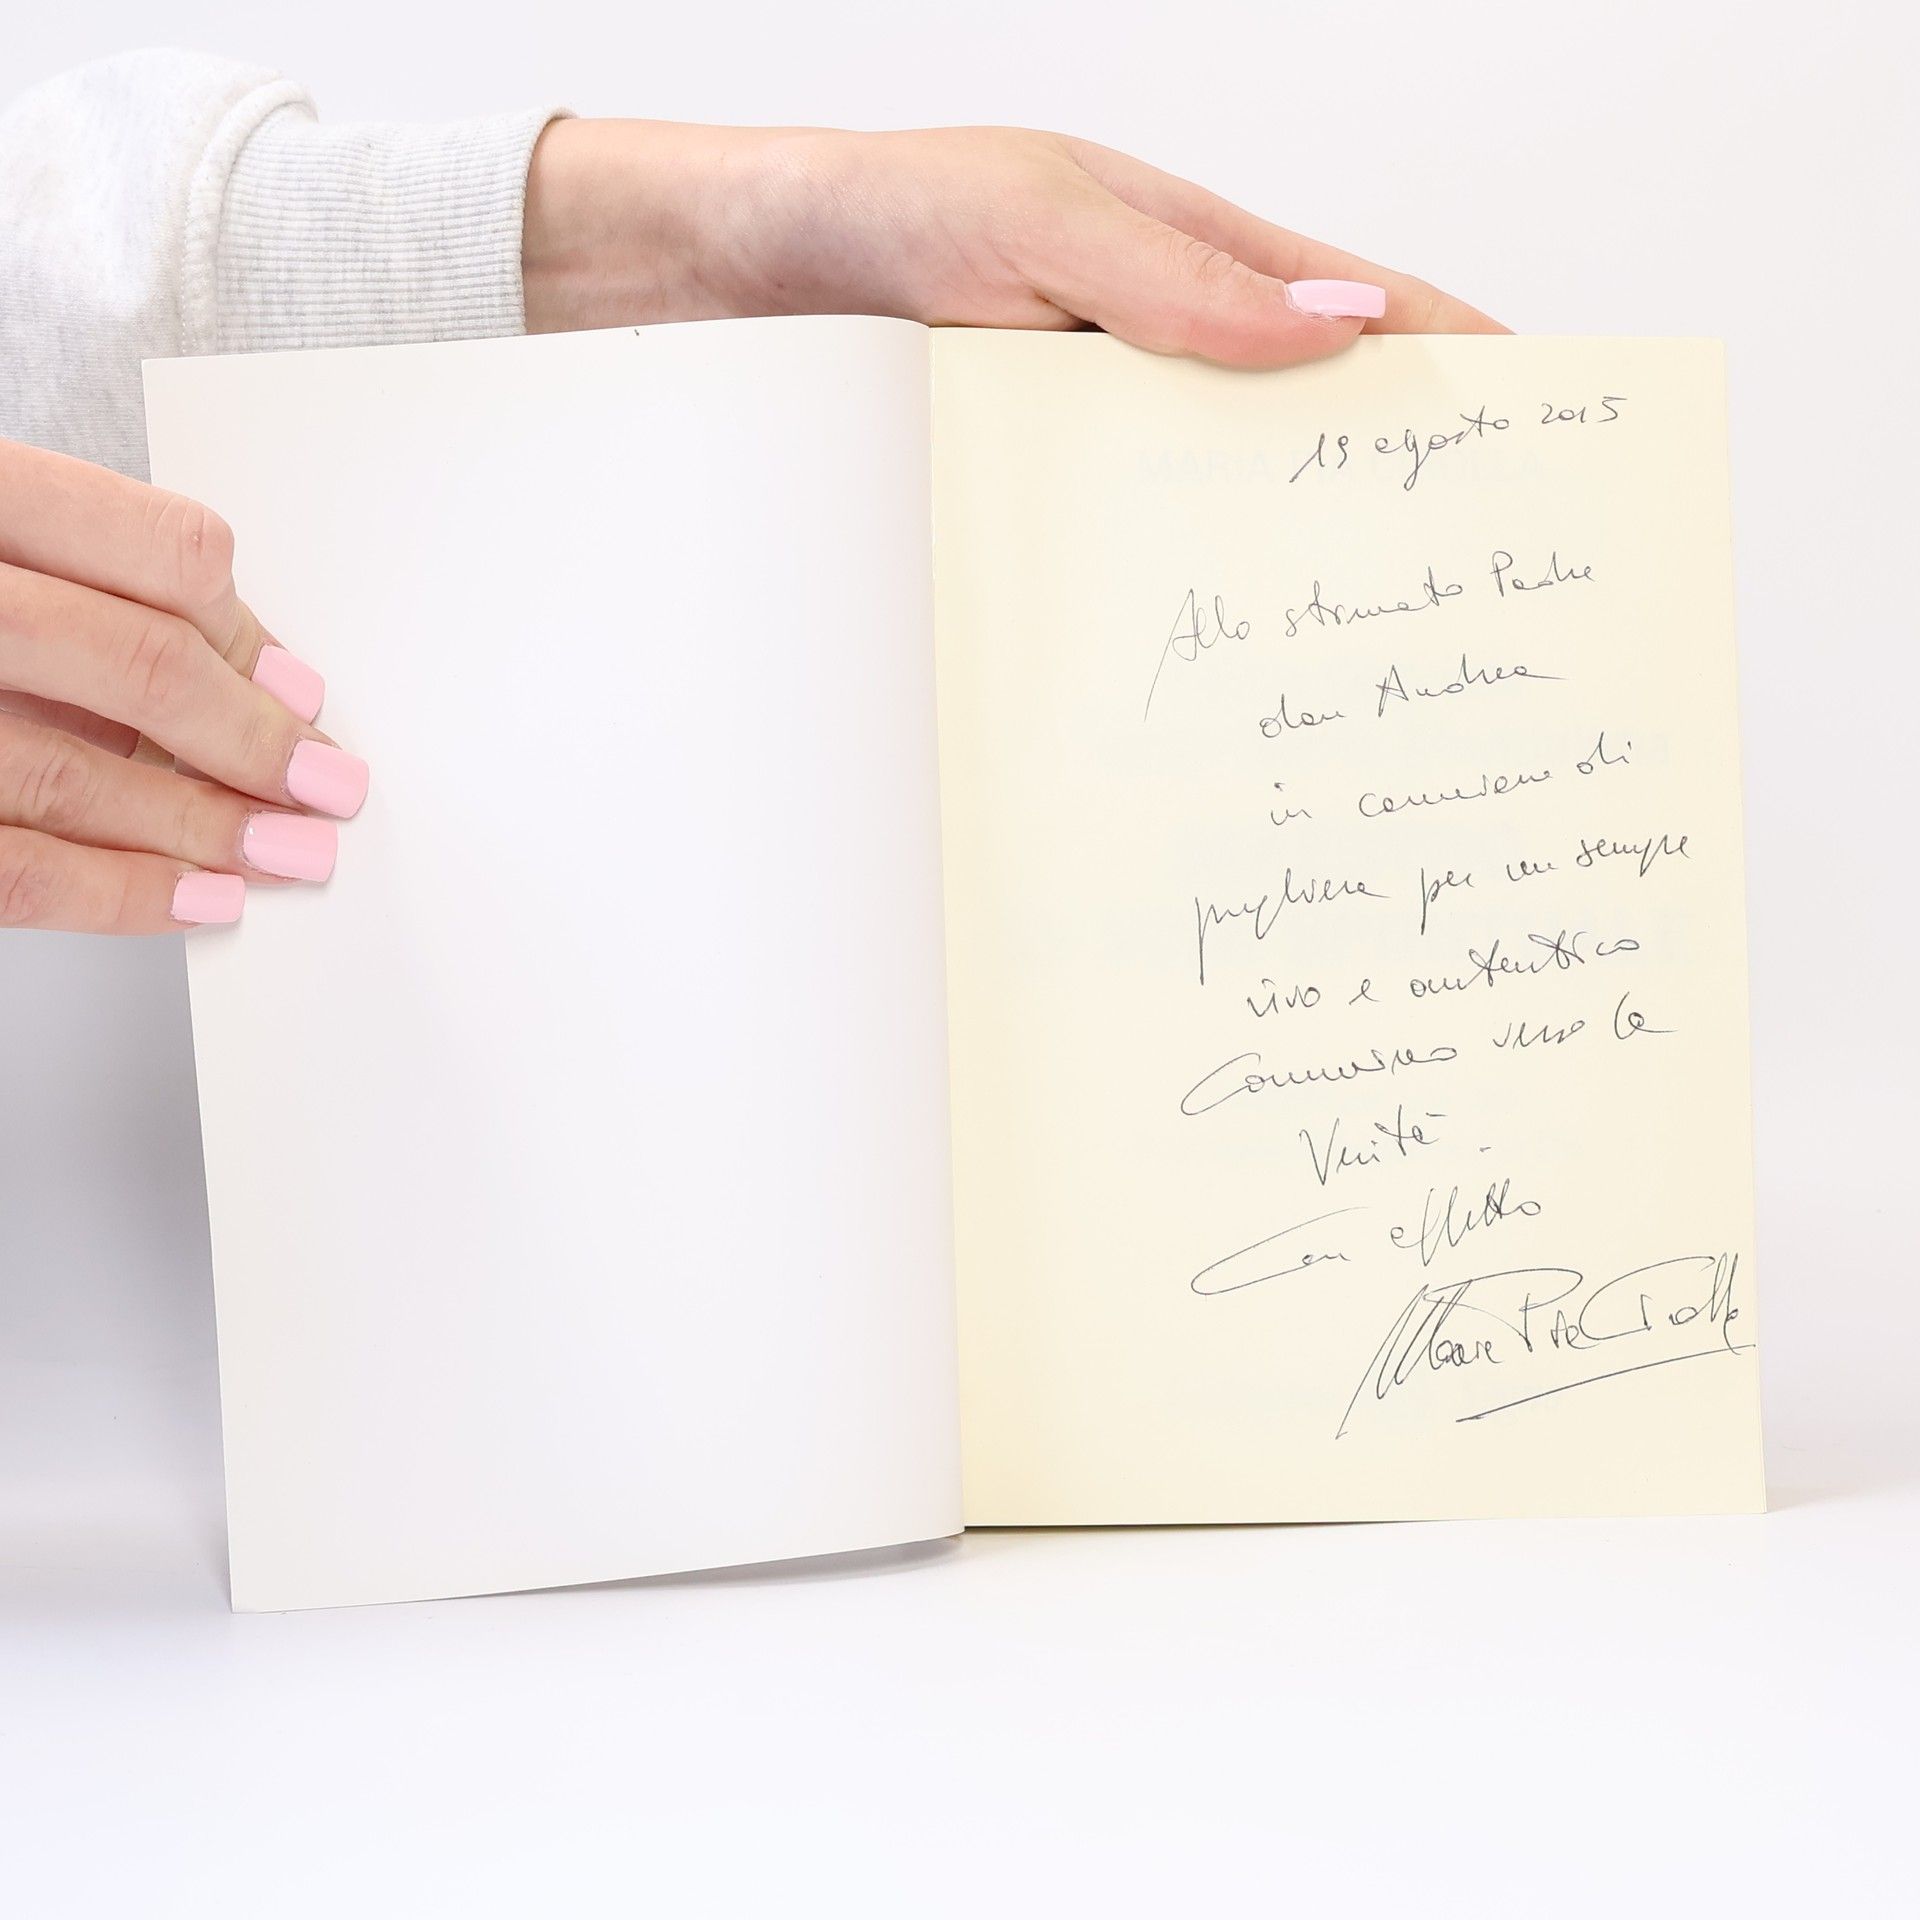 19 agosto 2015
Allo stimato Padre
don Andrea
in comunione di
preghiera per un sempre
vivo e autentico
Cammino verso la
Verità.
Con affetto
Maria Pia Ciolla